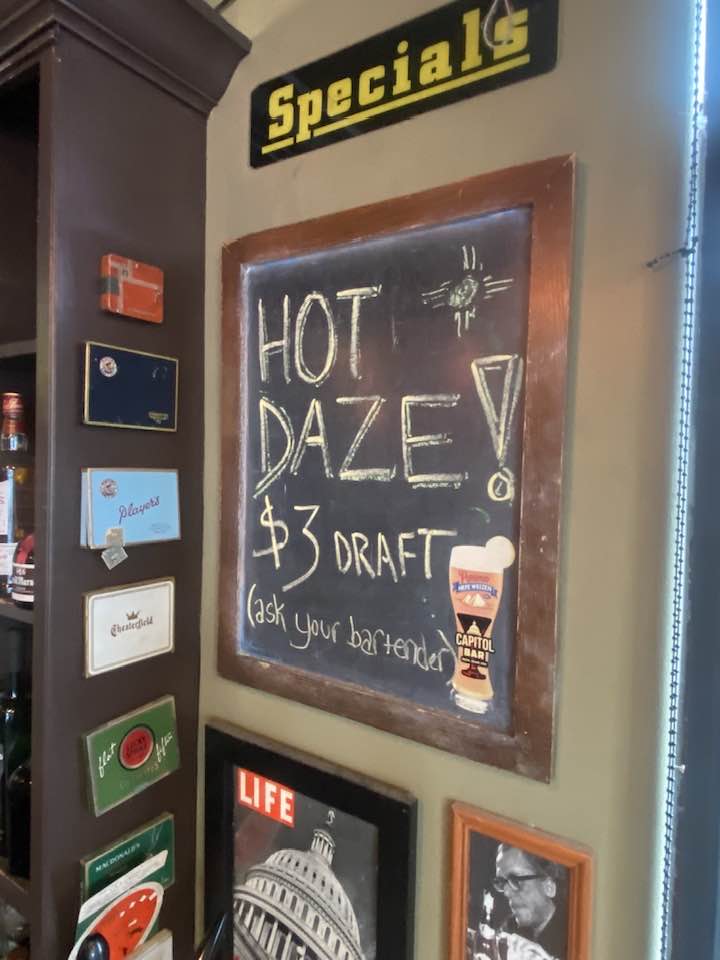 Specials
HOT
DAZE!
$3 DRAFT
(ask your bartender)
HEFE WEIZEN
CAPITOL
BAR
Player's
Chesterfield
flat
LUCKY
STRIKE
fifties
MACDONALD'S
LIFE